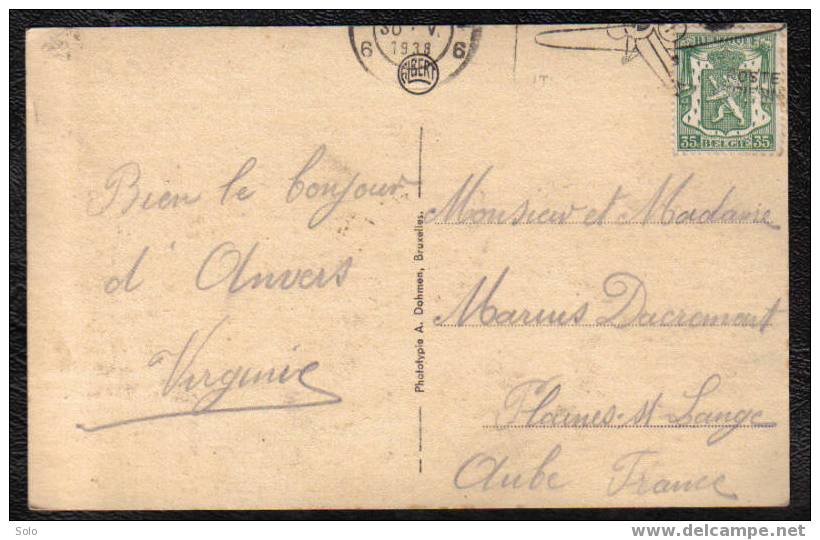 6 1938 6
ALBERT
BELGIQUE
POSTE
35 BELGIË 35
Bien le bonjour
d'Anvers
Virginie
Phototypie A. Dohmen, Bruxelles.
Monsieur et Madame
Marius Dacremont
Plaines-st-Lange
Aube France
Solo
www.delcampe.net